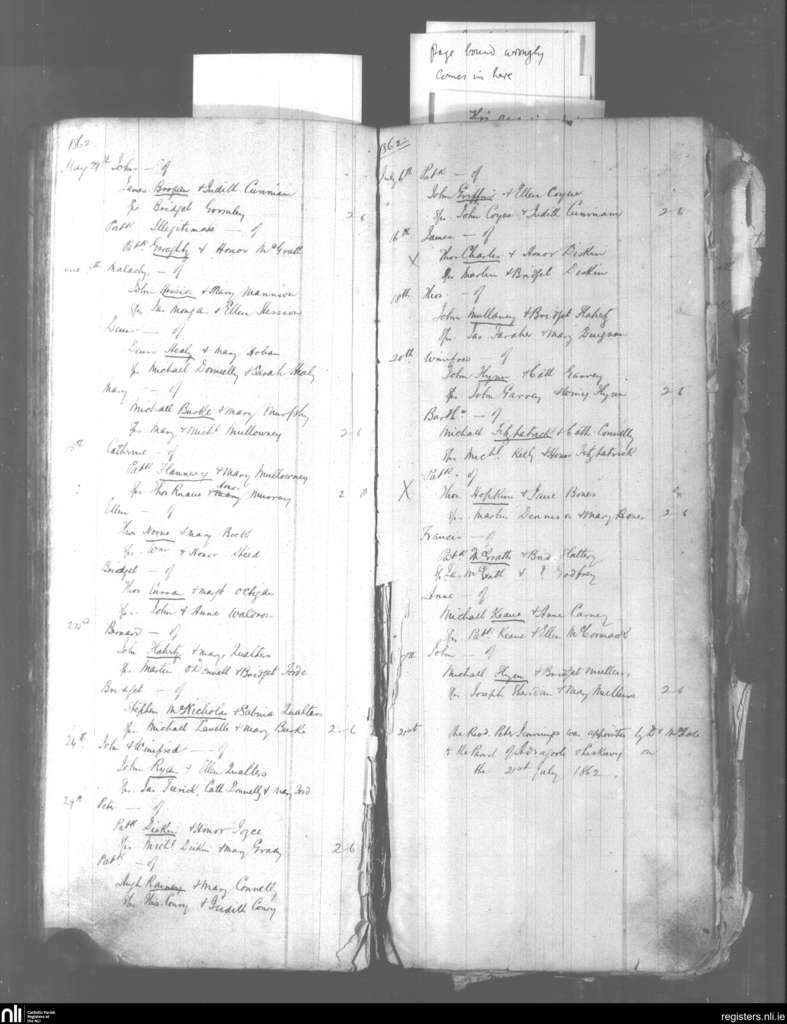 Page bound wrongly
comes in here
1862
May 29th John — of
James Brogan & Judith Cunnian
Sps Bridget Gormley 2-6
Patk Illegitimate — of
Patk Geraghty & Honor McGrath
5th Malachy — of
John Hession & Mary Mannion
Sps Jas & Ellen Hession
Denis — of
Denis Healy & Mary Hoban
Sps Michael Donnelly & Sarah Healy
Mary — of
Michael Burke & Mary Murphy
Sps Mary & Michl Mullowney 2-6
15th Catherine — of
Patk Flannery & Mary Mullowney
Sps Thos Ruane & Mary Murray 2 0
Ellen — of
Thos & Mary
Sps Wm & Honor
Bridget — of
Thos & Magt
Sps John & Anne Waldron
22nd — of
John Flaherty & Mary Qualters
Sps Martin O'Donnell & Bridget Forde
Bridget — of
Stephen McNicholas & Sabina Qualters
Sps Michael Lavelle & Mary Burke 2-6
24th John & Winifred — of
John Ryan & Ellen Qualters
Sps Jas Cath Donnelly & Mary Ford
29th Peter — of
Patk Diskin & Honor Joyce
Sps Michl Diskin & Mary Grady 2-6
Patk — of
Hugh & Mary Connelly
Sps Thos Conry & Judith Conry
1862
July 6th Patk — of
John Griffin & Ellen Coyne
Sps John Coyne & Judith Cunniam 2-6
16th James — of
X Thos Charles & Honor Diskin
Sps Martin & Bridget Diskin
18th Thos — of
John Mullaney & Bridget Flaherty
Sps Jas Faraher & Mary Duignan
20th Winifred of
John Flynn & Cath Garvey
Sps John Garvey & Flynn 2-6
Barthw — of
Michael Fitzpatrick & Cath Connelly
Sps Michl Kelly & Honor Fitzpatrick
Patk — of
X Thos Hopkins & Jane Bones
Sps Martin Dennison & Mary Bones 2-6
Francis — of
Patk McGrath & Brid Slattery
Sps Jas McGrath & ? Godfrey
Anne — of
Michael Keane & Anne Carney
Sps Patk Keane & Ellen McCormack
John — of
Michael Flynn & Bridget Mullens
Sps Joseph Sheridan & Mary Mullens 2-6
21st the Revd Peter Jennings was appointed by Dr McHale
to the Parish of & on
the 21st July 1862.
nli
Catholic Parish
Registers at
the NLI
registers.nli.ie